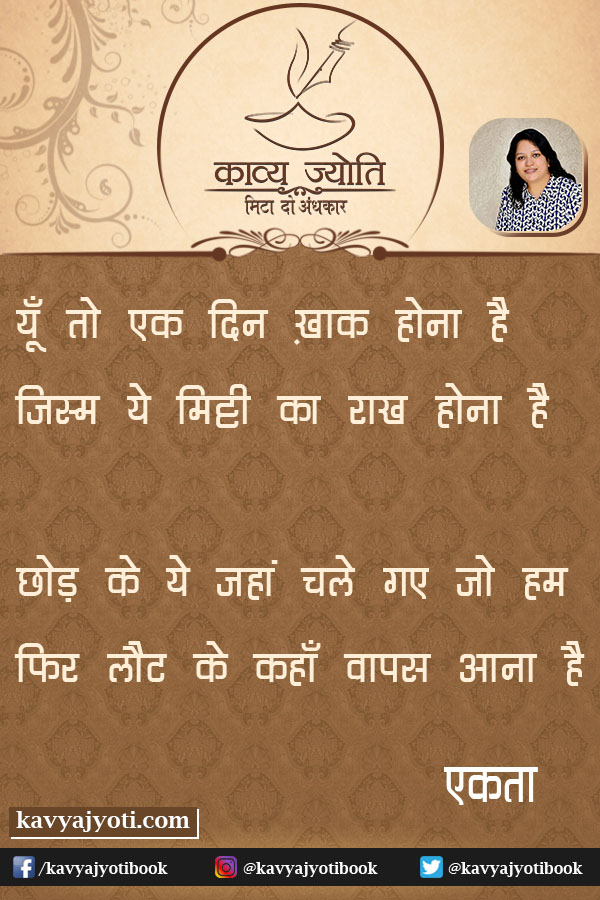 काव्य ज्योति
मिटा दो अंधकार
यूँ तो एक दिन ख़ाक होना है
जिस्म ये मिट्टी का राख होना है
छोड़ के ये जहां चले गए जो हम
फिर लौट के कहाँ वापस आना है
एकता
kavyajyoti.com
/kavyajyotibook @kavyajyotibook @kavyajyotibook